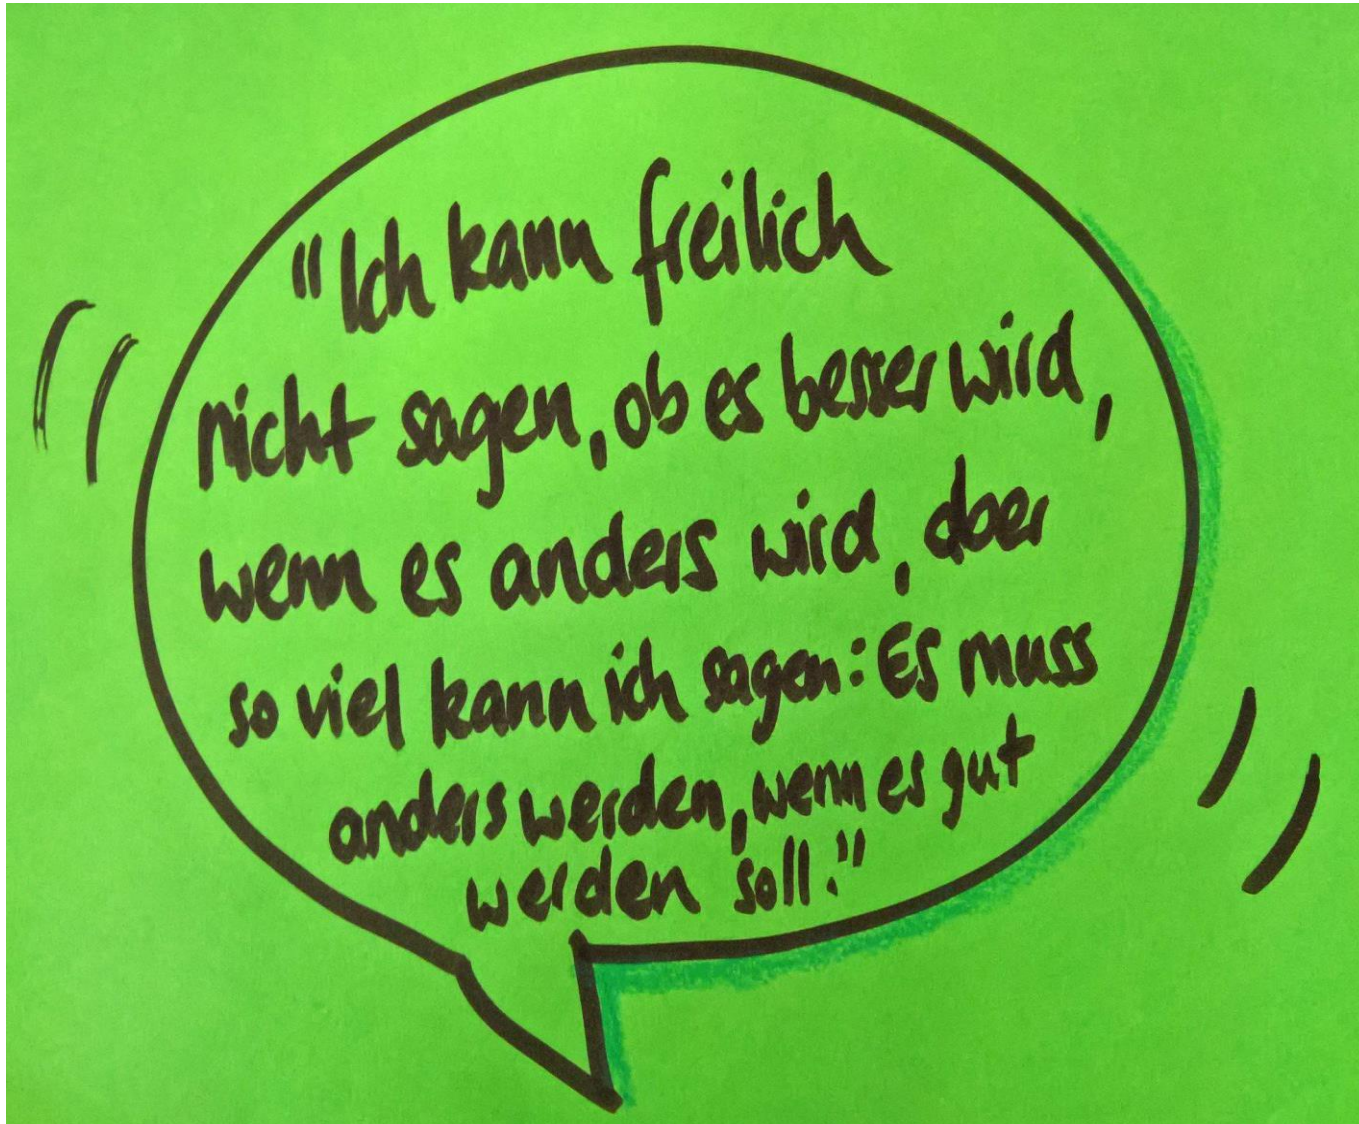 "Ich kann freilich
nicht sagen, ob es besser wird,
wenn es anders wird, aber
so viel kann ich sagen: Es muss
anders werden, wenn es gut
werden soll."